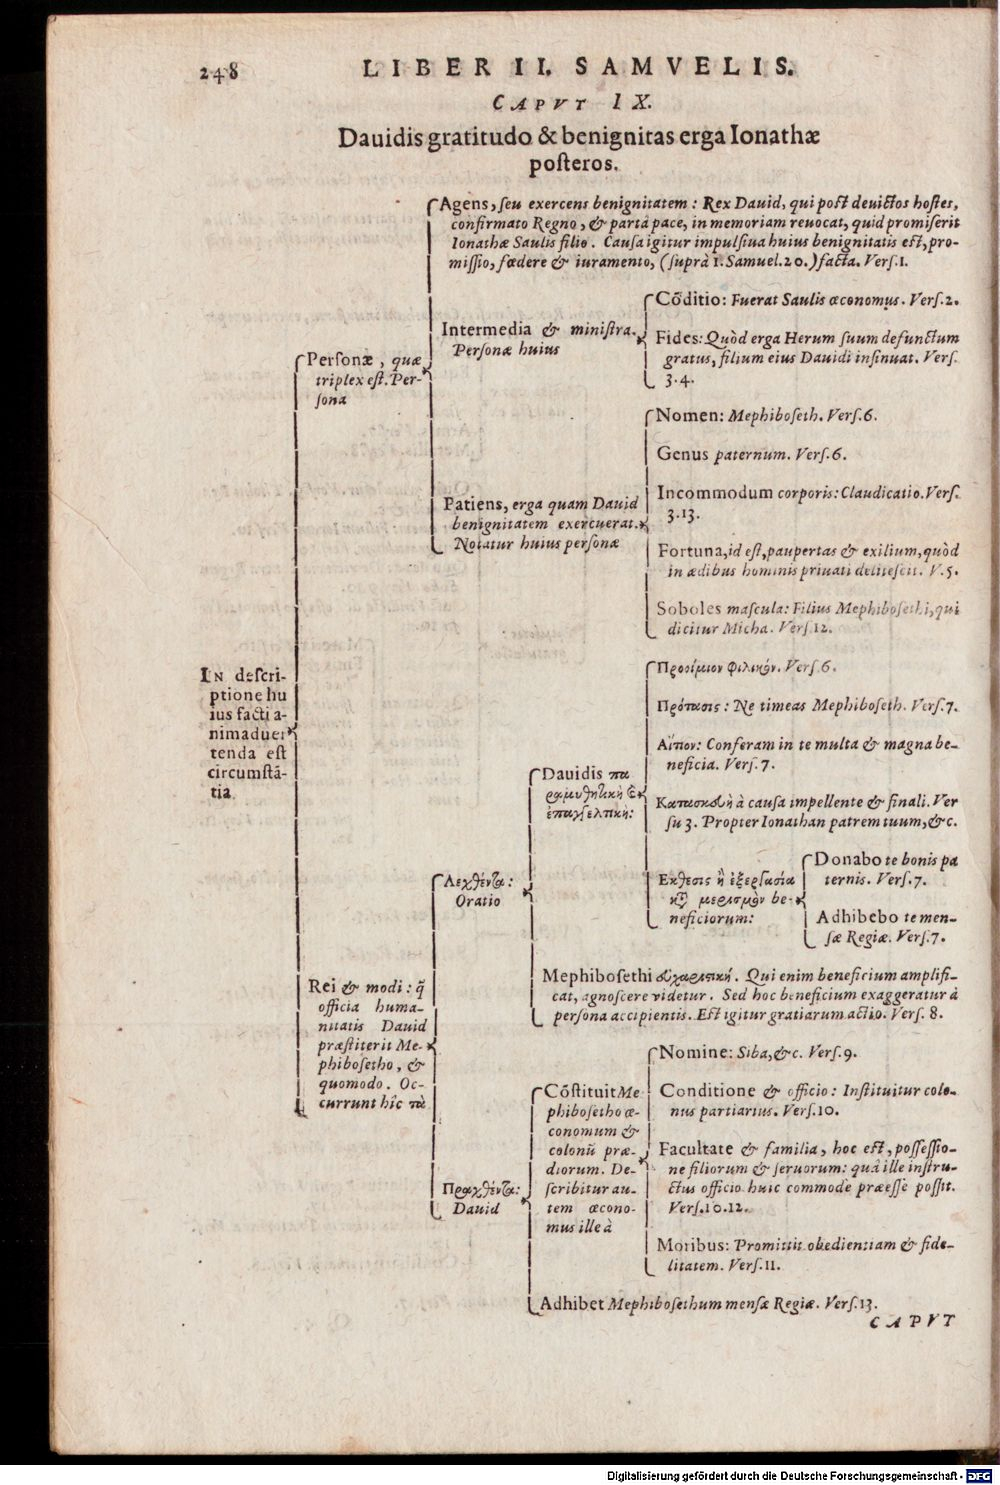 248
LIBER II. SAMVELIS.
CAPVT IX.
Dauidis gratitudo & benignitas erga Ionathæ
posteros.
IN descri-
ptione hu
ius facti a-
nimaduer
tenda est
circumstā-
tia
Personæ, quæ
triplex est. Per-
sona
Agens, seu exercens benignitatem: Rex Dauid, qui post deuictos hostes,
confirmato Regno, & parta pace, in memoriam reuocat, quid promiserit
Ionathæ Saulis filio. Causa igitur impulsiua huius benignitatis est, pro-
missio, fœdere & iuramento, (suprà 1. Samuel. 20.) facta. Vers. 1.
Intermedia & ministra.
Personæ huius
Cōditio: Fuerat Saulis œconomus. Vers. 2.
Fides: Quòd erga Herum suum defunctum
gratus, filium eius Dauidi insinuat. Vers.
3. 4.
Patiens, erga quam Dauid
benignitatem exercuerat.
Notatur huius personæ
Nomen: Mephiboseth. Vers. 6.
Genus paternum. Vers. 6.
Incommodum corporis: Claudicatio. Vers.
3. 13.
Fortuna, id est, paupertas & exilium, quòd
in ædibus hominis priuati delitescit. V. 5.
Soboles mascula: Filius Mephibosethi, qui
dicitur Micha. Vers. 12.
Rei & modi: q̃
officia huma-
nitatis Dauid
præstiterit Me-
phibosetho, &
quomodo. Oc-
currunt hîc τὰ
Λεχθέντα:
Oratio
Dauidis πα
ραμυθητικὴ &
ἐπαγγελτικὴ:
Προοίμιον φιλικόν. Vers. 6.
Πρότασις: Ne timeas Mephiboseth. Vers. 7.
Αἴτιον: Conferam in te multa & magna be-
neficia. Vers. 7.
Κατασκευὴ à causa impellente & finali. Ver
su 3. Propter Ionathan patrem tuum, &c.
Εκθεσις ἢ ἐξεργασία
κτ̃ μερισμὸν be-
neficiorum:
Donabo te bonis pa
ternis. Vers. 7.
Adhibebo te men-
sæ Regiæ. Vers. 7.
Mephibosethi εὐχαριστική. Qui enim beneficium amplifi-
cat, agnoscere videtur. Sed hoc beneficium exaggeratur à
persona accipientis. Est igitur gratiarum actio. Vers. 8.
Πραχθέντα:
Dauid
Cōstituit Me
phibosetho œ-
conomum &
colonū præ-
diorum. De-
scribitur au-
tem œcono-
mus ille à
Nomine: Siba, &c. Vers. 9.
Conditione & officio: Instituitur colo-
nus partiarius. Vers. 10.
Facultate & familia, hoc est, possessio-
ne filiorum & seruorum: quâ ille instru-
ctus officio huic commode præesse possit.
Vers. 10. 12.
Moribus: Promittit obedientiam & fide-
litatem. Vers. 11.
Adhibet Mephibosethum mensæ Regiæ. Vers. 13.
CAPVT
Digitalisierung gefördert durch die Deutsche Forschungsgemeinschaft - DFG